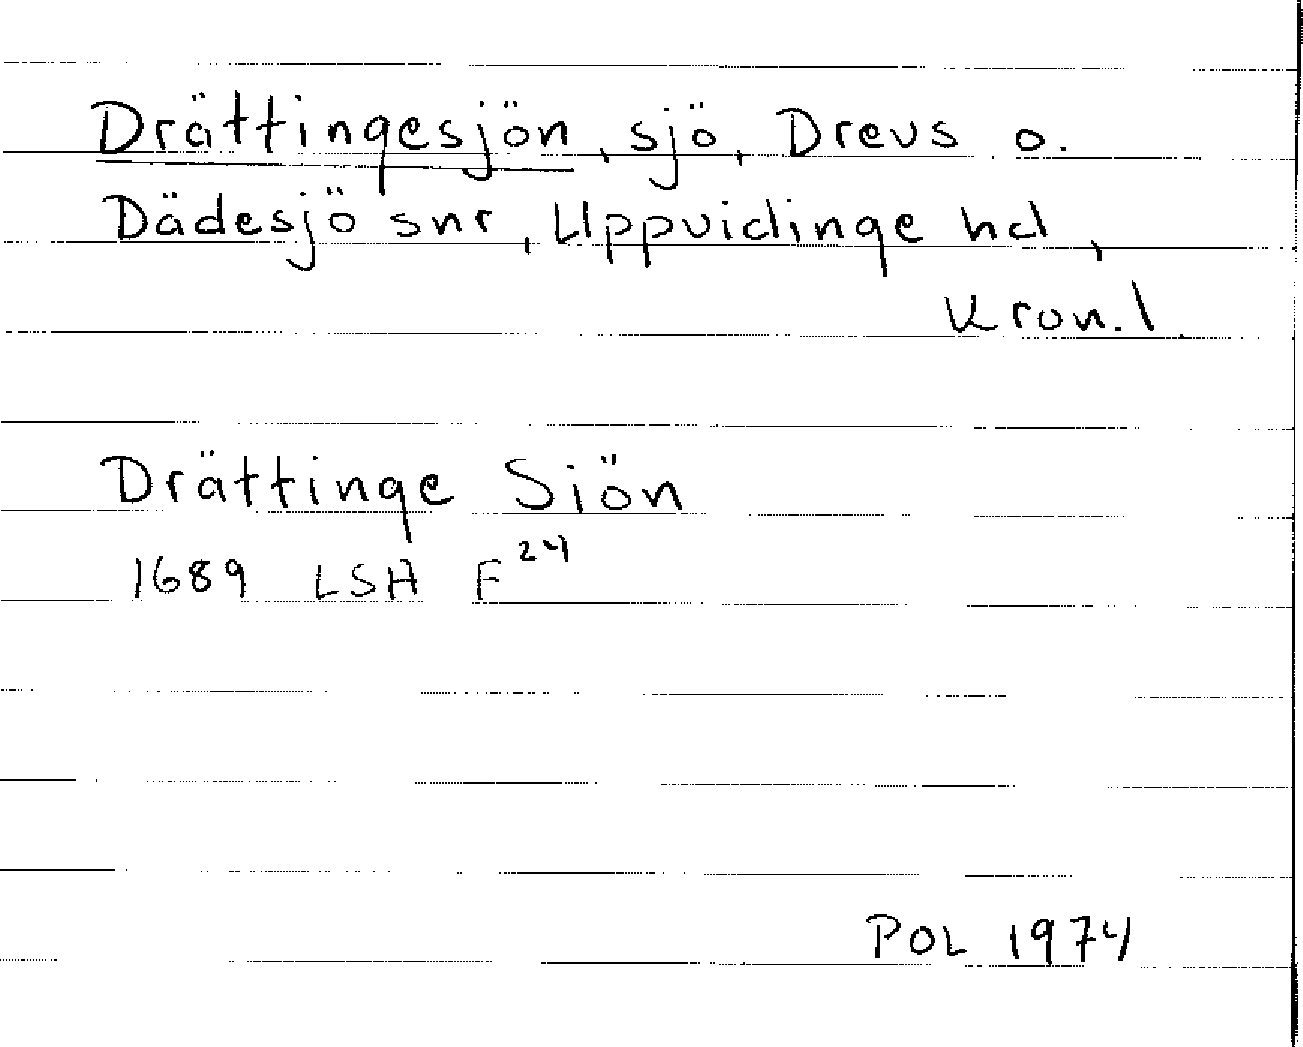 Drättingesjön, sjö, Drevs o.
Dädesjö snr, Uppvidinge hd,
Kron. l.
Drättinge Siön
1689 LSA F24
POL 1974